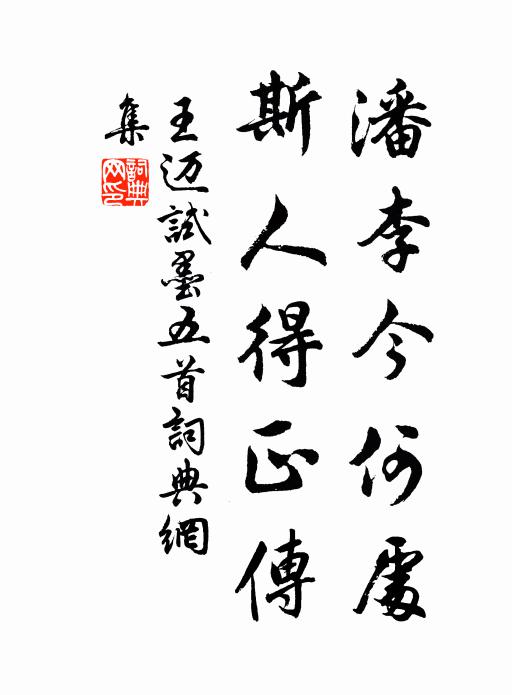 潘李今何處
斯人得正傳
王迈試墨五首詞典網
集
詞典网印